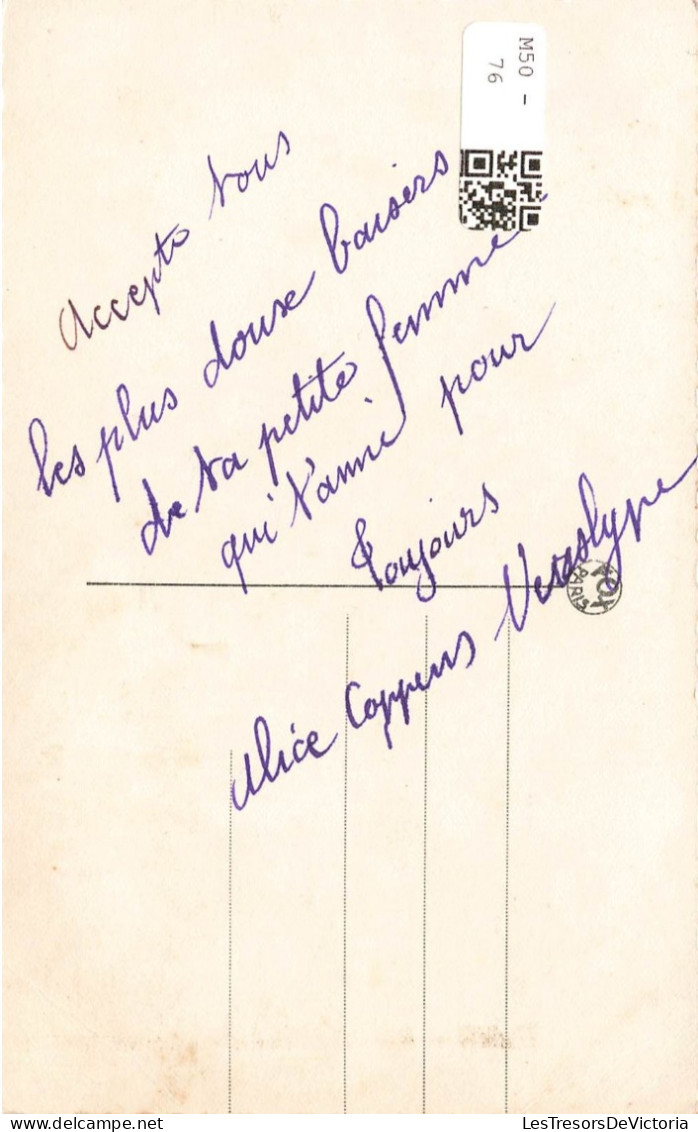 M50 -
76
accepte tous
les plus douxe baisers
de ta petite femme
qui t'aime pour
toujours
Alice Coppens Verslype
PARIS
LesTresorsDeVictoria